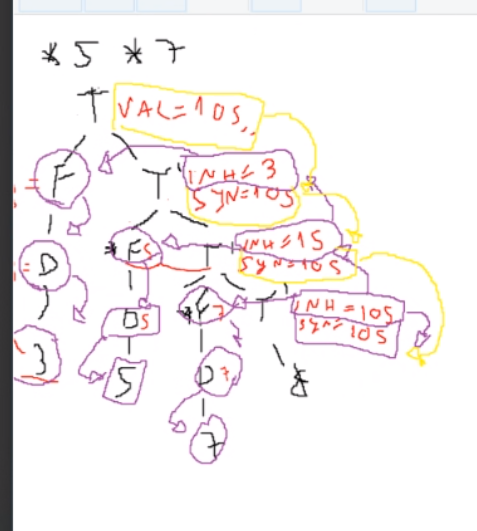 *5 *7
T VAL=105
F T' INH=3
SYN=105
*F5 T' INH=15
SYN=105
D D5 *F7 T' INH=105
SYN=105
3 5 D7 ε
7